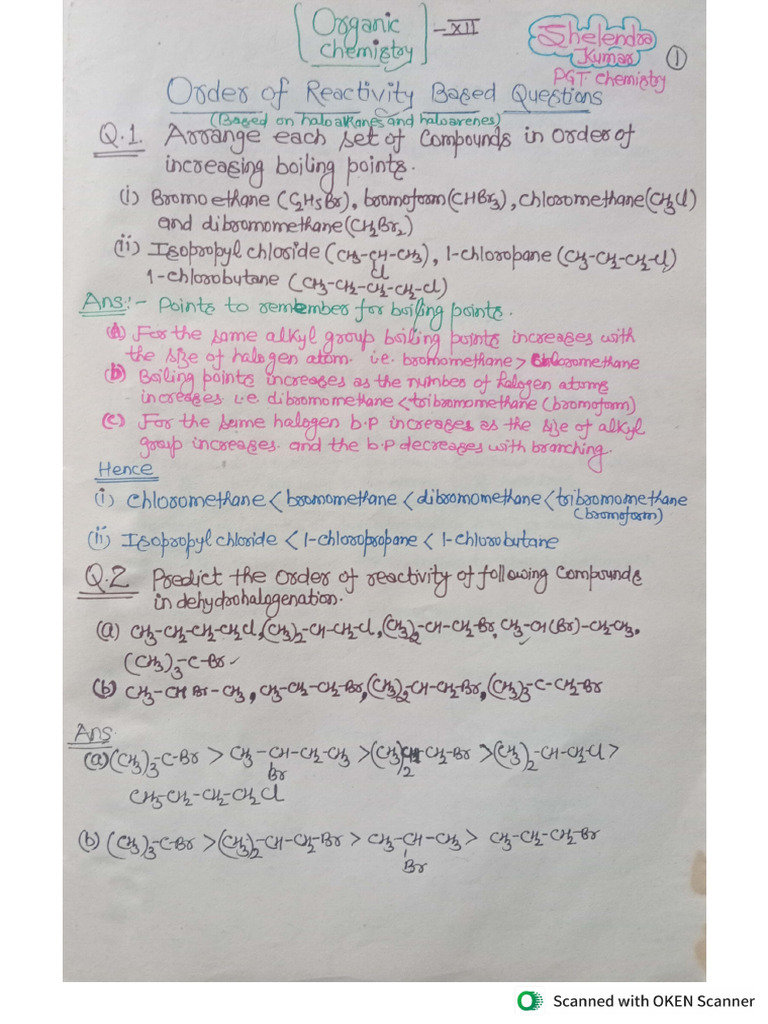 Organic
Chemistry
-XII
Shelendra
Kumar
PGT Chemistry
1
Order of Reactivity Based Questions
(Based on haloalkanes and haloarenes)
Q.1. Arrange each set of Compounds in order of
increasing boiling points.
(i) Bromoethane (C2H5Br), bromoform(CHBr3), chloromethane(CH3Cl)
and dibromomethane(CH2Br2)
(ii) Isopropyl chloride (CH3-CH-CH3), 1-chloropane (CH3-CH2-CH2-Cl)
Cl
1-chlorobutane (CH3-CH2-CH2-CH2-Cl)
Ans:- Points to remember for boiling points.
(a) For the same alkyl group boiling points increases with
the size of halogen atom. i.e. bromomethane > Chloromethane
(b) Boiling points increases as the number of halogen atoms
increases i.e. dibromomethane < tribromomethane (bromoform)
(c) For the same halogen b.p increases as the size of alkyl
group increases. and the b.p decreases with branching.
Hence
(i) Chloromethane < bromomethane < dibromomethane < tribromomethane
(bromoform)
(ii) Isopropyl chloride < 1-chloropropane < 1-chlorobutane
Q.2 Predict the order of reactivity of following compounds
in dehydrohalogenation.
(a) CH3-CH2-CH2-CH2Cl, (CH3)2-CH-CH2Cl, (CH3)2-CH-CH2Br, CH3-CH(Br)-CH2-CH3,
(CH3)3-C-Br
(b) CH3-CHBr-CH3, CH3-CH2-CH2-Br, (CH3)2-CH-CH2Br, (CH3)3-C-CH2-Br
Ans
(a) (CH3)3-C-Br > CH3-CH-CH2-CH3 > (CH3)2CH-CH2-Br > (CH3)2-CH-CH2Cl >
Br
CH3CH2-CH2-CH2Cl
(b) (CH3)3-C-Br > (CH3)2-CH-CH2-Br > CH3-CH-CH3 > CH3-CH2-CH2-Br
Br
Scanned with OKEN Scanner